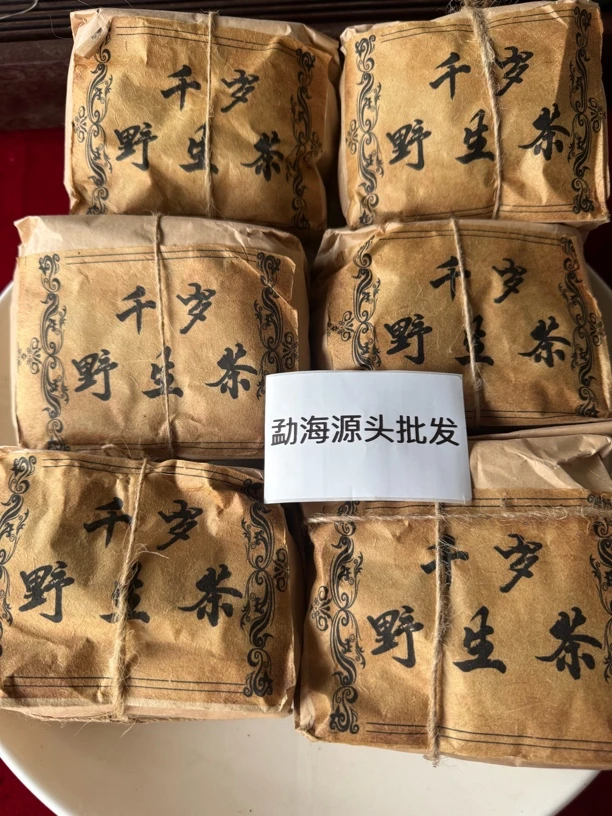 千岁
野生茶
千岁
野生茶
千岁
野生茶
千岁
野生茶
勐海源头批发
千岁
野生茶
千岁
野生茶